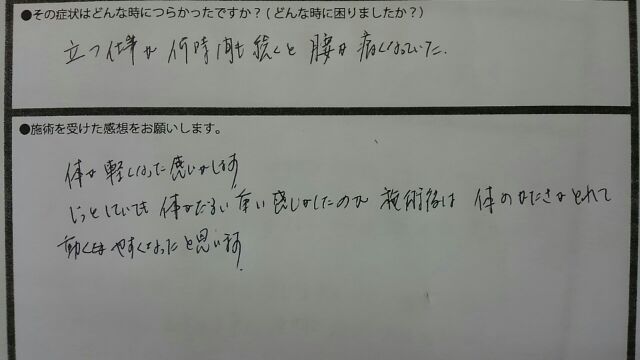 ●その症状はどんな時につらかったですか?(どんな時に困りましたか?)
立つ仕事が何時間も続くと腰が痛くなっていた.
●施術を受けた感想をお願いします。
体が軽くなった感じがします
じっとしていても体がだるい重い感じがしたのが施術後は体のかたさがとれて
動くも やすくなったと思います